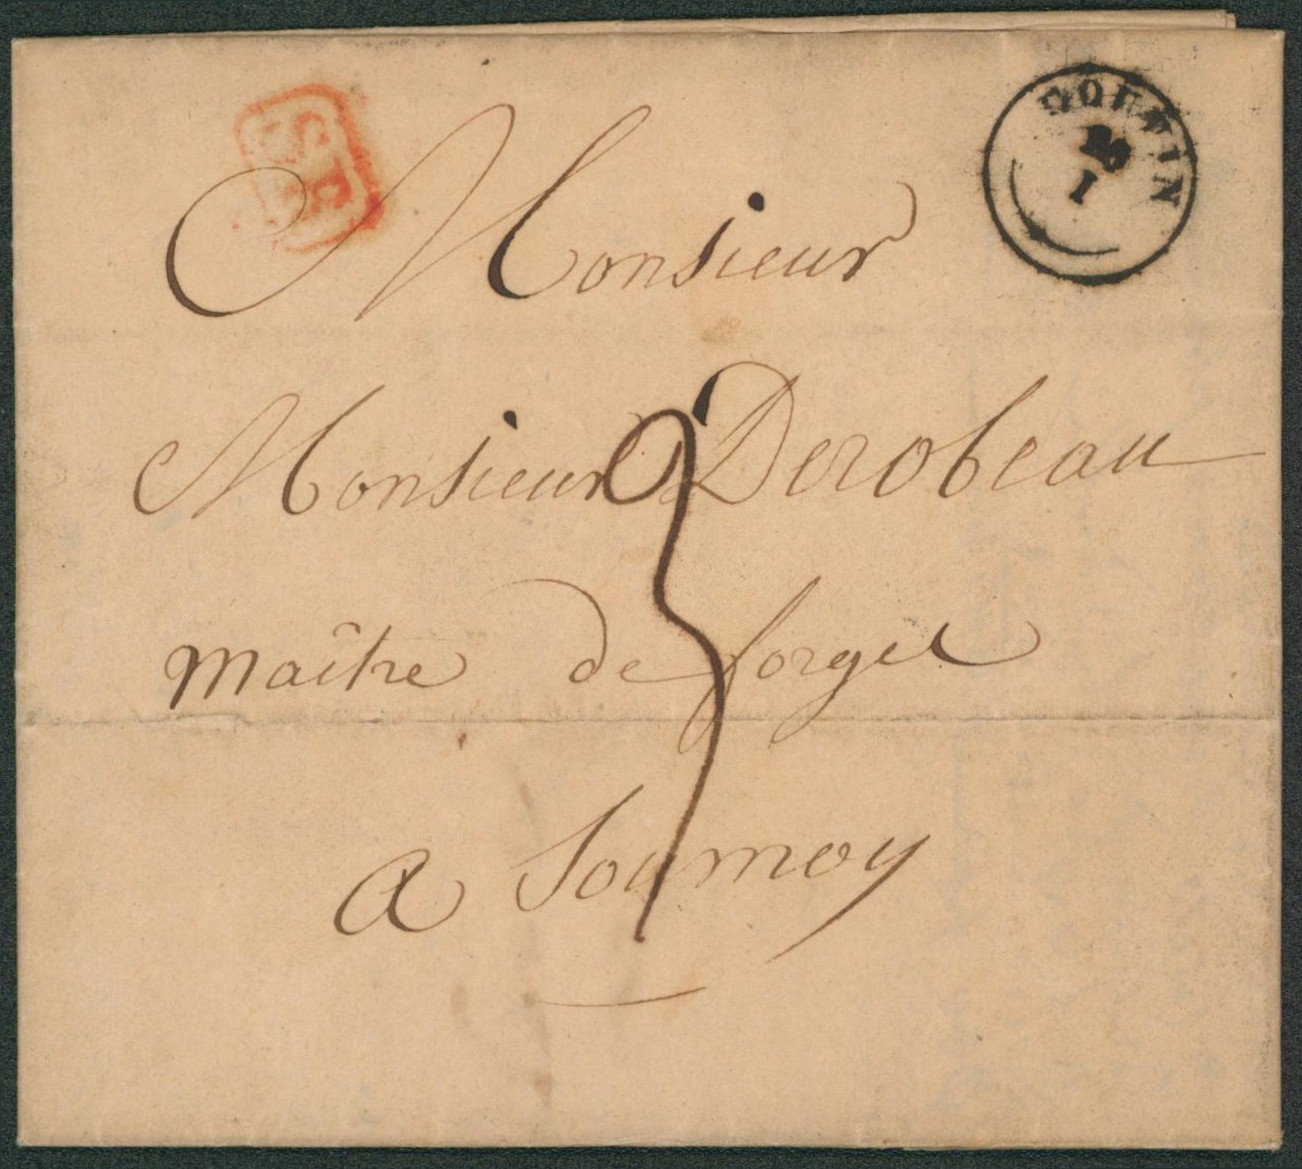 SR
COUVIN
26
1
Monsieur
Monsieur Derobeau
3
Maître de forges
a Soumoy